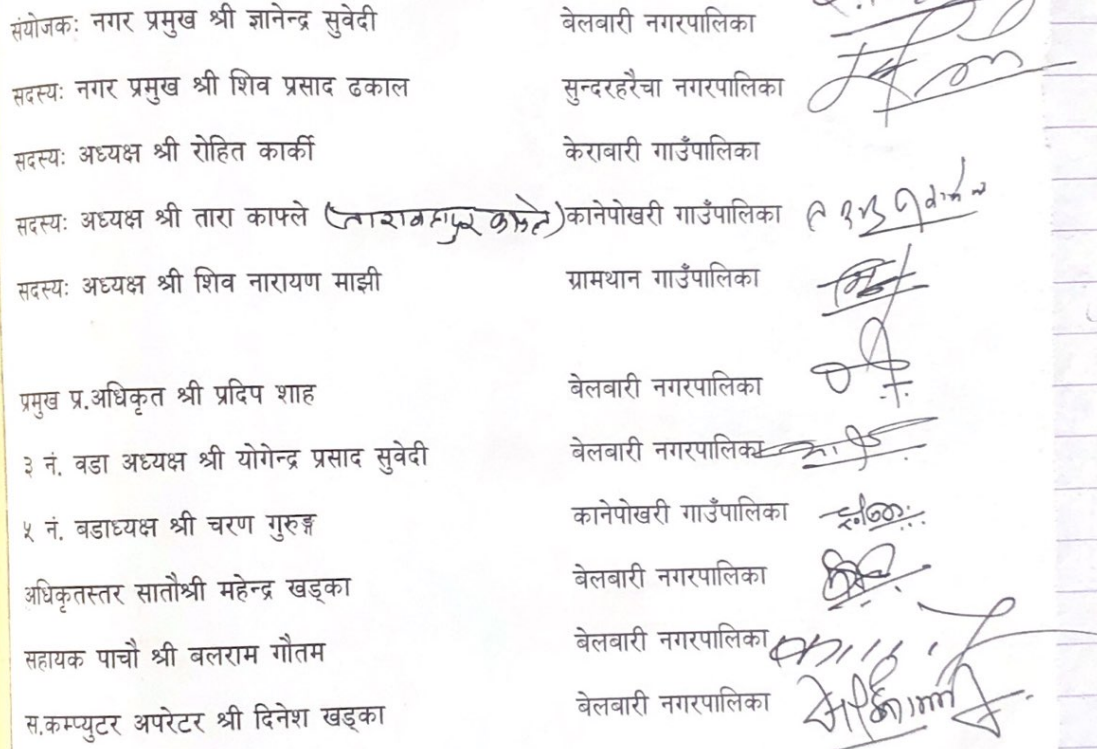 संयोजकः नगर प्रमुख श्री ज्ञानेन्द्र सुवेदी बेलबारी नगरपालिका
सदस्यः नगर प्रमुख श्री शिव प्रसाद ढकाल सुन्दरहरैचा नगरपालिका
सदस्यः अध्यक्ष श्री रोहित कार्की केराबारी गाउँपालिका
सदस्यः अध्यक्ष श्री तारा काफ्ले (ताराबहादुर काफ्ले) कानेपोखरी गाउँपालिका
सदस्यः अध्यक्ष श्री शिव नारायण माझी ग्रामथान गाउँपालिका
प्रमुख प्र.अधिकृत श्री प्रदिप शाह बेलबारी नगरपालिका
३ नं. वडा अध्यक्ष श्री योगेन्द्र प्रसाद सुवेदी बेलबारी नगरपालिका
५ नं. बडाध्यक्ष श्री चरण गुरुङ्ग कानेपोखरी गाउँपालिका
अधिकृतस्तर सातौश्री महेन्द्र खड्का बेलबारी नगरपालिका
सहायक पाचौ श्री बलराम गौतम बेलबारी नगरपालिका
स.कम्प्युटर अपरेटर श्री दिनेश खड्का बेलबारी नगरपालिका